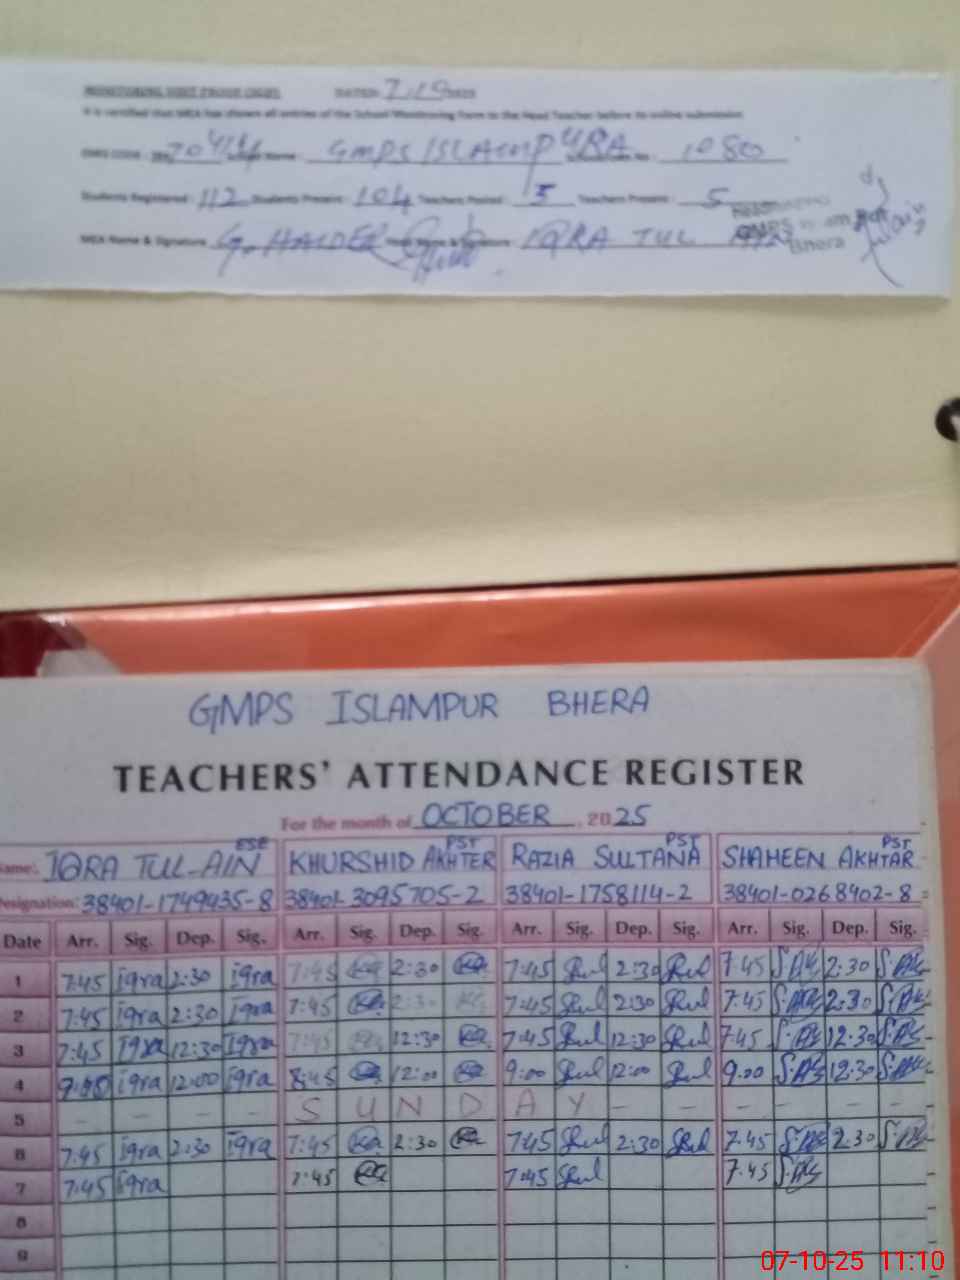 MONITORING VISIT PROOF DATED 7.10 2025
It is certified that MEA has shown all entries of the School Monitoring Form to the Head Teacher before its online submission
EMIS CODE : Name : GMPS ISLAMPURA No : 1080
Students Registered : 112 Students Present : 104 Teachers Posted : 5 Teachers Present : 5
MEA Name & Signature G. HAIDER Name & Signature : IQRA TUL
GMPS
Bhera
GMPS ISLAMPUR BHERA
TEACHERS' ATTENDANCE REGISTER
For the month of OCTOBER, 2025
ESE PST PST PST
Name: IQRA TUL-AIN KHURSHID AKHTER RAZIA SULTANA SHAHEEN AKHTAR
Designation: 38401-1749435-8 38401-3095705-2 38401-1758114-2 38401-0268402-8
Date Arr. Sig. Dep. Sig. Arr. Sig. Dep. Sig. Arr. Sig. Dep. Sig. Arr. Sig. Dep. Sig.
1 7:45 iqra 2:30 iqra 7:45 2:30 7:45 2:30 7.45 2:30
2 7:45 iqra 2:30 iqra 7:45 2:30 7:45 2:30 7.45 2.30
3 7:45 iqra 12:30 iqra 7:45 12:30 7:45 12:30 7.45 12.30
4 iqra 12:00 iqra 8:45 12:00 9:00 12:00 9.00 12:30
5 - - - - S U N D A Y - - - -
6 7:45 iqra 2:30 iqra 7:45 2:30 7:45 2:30 7.45 2.30
7 7:45 iqra 7:45 7:45 7.45
8
9
07-10-25 11:10